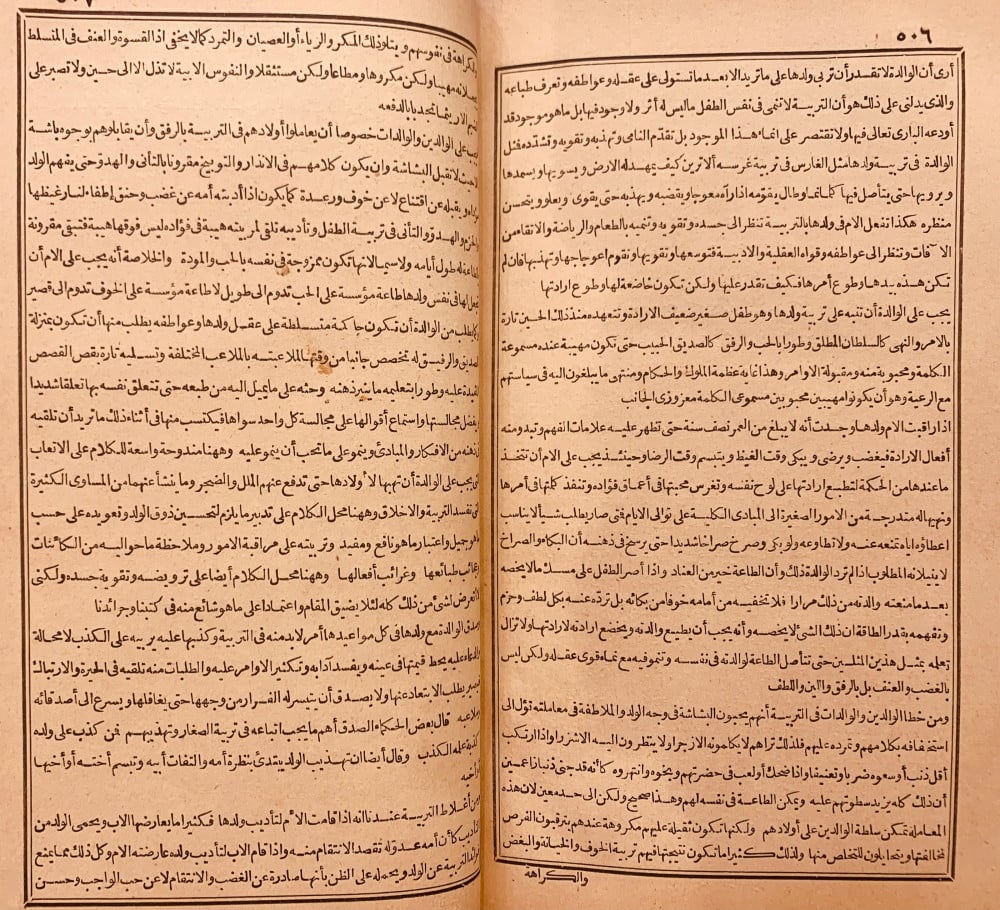 ٥٠٦
أرى أن الوالدة لا تقدر أن تربى ولدها على ما تريد الا بعد ما تستولى على عقله وعواطفه وتعرف طباعه
والذى يدلنى على ذلك هو أن التربية لا تنمى فى نفس الطفل ما ليس له أثر ولا وجود فيها بل ما هو موجود قد
أودعه البارى تعالى فيها ولا تقتصر على انماء هذا الموجود بل تقدّم النامى وتهذبه وتقويه وتشدّده فمثل
الوالدة فى تربية ولدها مثل الغارس فى تربية غرسه ألا ترين كيف يمهد له الارض ويسويها ويسمدها
ويرويها حتى يتأصل فيها كلما نما وطال يقوّمه اذا رآه معوجا ويقضبه ويهذبه حتى يقوى ويعلو ويحسن
منظره هكذا تفعل الام فى ولدها بالتربية تنظر الى جسده وتقويه وتنميه بالطعام والرياضة والاتقاء من
الآفات وتنظر الى عواطفه وقواه العقلية والادبية فتوسعها وتقويها وتقوم اعوجاجها وتهذبها فان لم
تكن هذه بيدها وطوع أمرها فكيف تقدر عليها ولكن تكون خاضعة لها وطوع ارادتها
يجب على الوالدة أن تنبه على تربية ولدها وهو طفل صغير ضعيف الارادة وتتعهده منذ ذلك الحين تارة
بالامر والنهى كالسلطان المطلق وطورا بالحب والرفق كالصديق الحبيب حتى تكون مهيبة عنده مسموعة
الكلمة ومحبوبة منه ومقبولة الاوامر وهذا غاية عظمة الملوك والحكام ومنتهى ما يبلغون اليه فى سياستهم
مع الرعية وهو أن يكونوا مهيبين محبوبين مسموعى الكلمة معزوزى الجانب
اذا راقبت الام ولدها وجدت أنه لا يبلغ من العمر نصف سنة حتى تظهر عليه علامات الفهم وتبدو منه
أفعال الارادة فيغضب ويرضى ويبكى وقت الغيظ ويتبسم وقت الرضا وحينئذ يجب على الام أن تتخذ
ما عندها من الحكمة لتطبيع ارادتها على لوح نفسه وتغرس محبتها فى أعماق فؤاده وتنفذ كلمتها فى أمرها
ونهيها له متدرجة من الامور الصغيرة الى المبادى الكلية على توالى الايام فتى صار يطلب شيأ لا يناسب
اعطاؤه اياه تمنعه عنه ولا تطاوعه ولو بكى وصرخ صراخا شديدا حتى يرسخ فى ذهنه أن البكاء والصراخ
لا ينيلانه المطلوب اذا لم ترد الوالدة ذلك وأن الطاعة خير من العناد واذا أصر الطفل على مسك ما لا يخصه
بعد ما منعته والدته من ذلك مرارا فلا تخفيه من أمامه خوفا من بكائه بل تردّه عنه بكل لطف وحزم
وتفهمه بقدر الطاقة ان ذلك الشئ لا يخصه وأنه يجب أن يطيع والدته ويخضع ارادته لارادتها ولا تزال
تعلمه بمثل هذين المثلين حتى تتأصل الطاعة لوالدته فى نفسه وتنمو فيه مع نماء قوى عقله ولكن ليس
بالغضب والعنف بل بالرفق واللين واللطف
ومن خطا الوالدين والوالدات فى التربية أنهم يحجبون البشاشة فى وجه الولد والملاطفة فى معاملته تؤل الى
استخفافه بكلامهم وتمرده عليهم فلذلك تراهم لا يكلمونه الا زجرا ولا ينظرون اليه الا شزرا واذا ارتكب
أقل ذنب أوسعوه ضربا وتعنيفا واذا ضحك أو لعب فى حضرتهم وبخوه وانتهروه كأنه قد جنى ذنبا زاعمين
أن ذلك كله يزيد سطوتهم عليه ويمكن الطاعة فى نفسه لهم وهذا صحيح ولكن الى حد معين لان هذه
المعاملة تمكن سلطة الوالدين على أولادهم ولكنها تكون ثقيلة عليهم مكروهة عندهم يترقبون الفرص
لمخالفتها ويتحايلون للتخلص منها ولذلك كثيرا ما تكون نتيجتها فيهم تربية الخوف والخيانة والبغض
والكراهة
والكراهة فى نفوسهم ويتلو ذلك المكر والرياء أو العصيان والتمرد كما لا يخفى اذا القسوة والعنف فى المتسلط
يجعلانه مهيبا ولكن مكروها ومطاعا ولكن مستثقلا والنفوس الابية لا تذل الا الى حين ولا تصبر على
الا ريثما تجد بابا لدفعه
على الوالدين والوالدات خصوصا أن يعاملوا أولادهم فى التربية بالرفق وأن يقابلوهم بوجوه باشة
لا تقبل البشاشة وان يكون كلامهم فى الانذار والتوبيخ مقرونا بالتأنى والهدو حتى يفهم الولد
ويقبله عن اقتناع لا عن خوف ورعدة كما يكون اذا أدبته أمه عن غضب وحنق اطفاء لنار غيظها
والحزم والهدو والتأنى فى تربية الطفل وتأديبه تلقى لمربيته هيبة فى فؤاده ليس فوقها هيبة فتبقى مقرونة
له طول أيامه ولا سيما لانها تكون ممزوجة فى نفسه بالحب والمودة والخلاصة أنه يجب على الام أن
تجعل لها فى نفس ولدها طاعة مؤسسة على الحب تدوم الى طويل لا طاعة مؤسسة على الخوف تدوم الى قصير
يطلب من الوالدة أن تكون حاكمة متسلطة على عقل ولدها وعواطفه يطلب منها أن تكون بمنزلة
الصديق والرفيق له تخصص جانبا من وقتها لملاعبته بالملاعب المختلفة وتسليه تارة بقص القصص
المفيدة عليه وطورا بتعليمه ما ينير ذهنه وحثه على ما يميل اليه من طبعه حتى تتعلق نفسه بها تعلقا شديدا
ويفضل مجالستها واستماع أقوالها على مجالسة كل واحد سواها فيكتسب منها فى أثناء ذلك ما تريد أن تلقيه
ذهنه من الافكار والمبادئ وينمو على ما تحب أن ينمو عليه وههنا مندوحة واسعة للكلام على الالعاب
التى يجب على الوالدة أن تهيها لأولادها حتى تدفع عنهم الملل والضجر وما ينشأ عنهما من المساوى الكثيرة
التى تفسد التربية والاخلاق وههنا محل الكلام على تدبير ما يلزم لتحسين ذوق الولد وتعويده على حسب
ما هو جميل واعتبار ما هو نافع ومفيد وتربيته على مراقبة الامور وملاحظة ما حواليه من الكائنات
وعجائب طبائعها وغرائب أفعالها وههنا محل الكلام أيضا على ترويضه وتقوية جسده ولكنى
لا أتعرض لشئ من ذلك كله لئلا يضيق المقام واعتمادا على ما هو شائع منه فى كتبنا وجرائدنا
صدق الوالدة مع ولدها فى كل مواعيدها أمر لا بد منه فى التربية وكذبها عليه يربيه على الكذب لا محالة
عليه يحط قيمتها فى عينه ويفسد آدابه وتكثير الاوامر عليه والطلبات منه تلقيه فى الحيرة والارتباك
فيصير يطلب الابتعاد عنها ولا يصدق أن يتيسر له الفرار من وجهها حتى يغافلها ويسرع الى أصدقائه
وملاعبه قال بعض الحكماء الصدق أهم ما يجب اتباعه فى تربية الصغار وتهذيبهم فمن كذب على ولده
كذبة علمه الكذب وقال أيضا ان تهذيب الولد يبتدئ بنظرة أمه والتفات أبيه وتبسم أخته أو أخيها
ومن أغلاط التربية عندنا انه اذا قامت الأم لتأديب ولدها فكثيرا ما يعارضها الاب ويحمى الولد من
التأديب كأن أمه عدوة له تقصد الانتقام منه واذا قام الاب لتأديب ولده عارضته الام وكل ذلك مما يمنع
فوائد التربية عن الولد ويحمله على الظن بأنها صادرة عن الغضب والانتقام لا عن حب الواجب وحسن